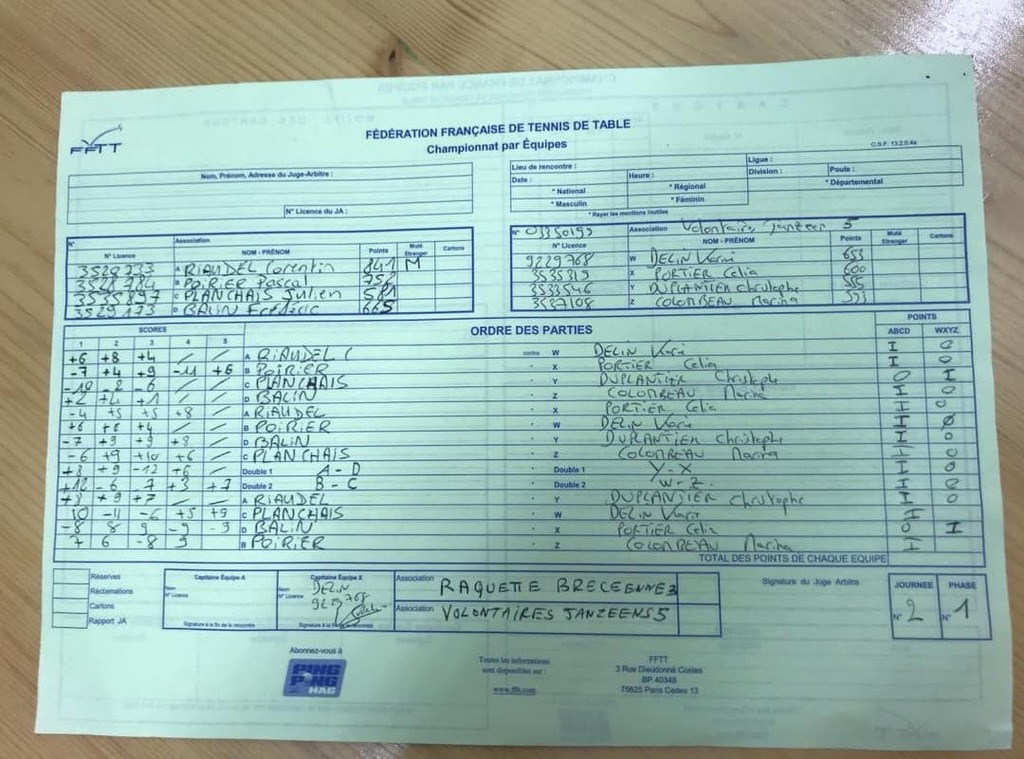 FFTT
FÉDÉRATION FRANÇAISE DE TENNIS DE TABLE
Championnat par Équipes
C.S.F. 13.2.0.4a
Nom, Prénom, Adresse du Juge-Arbitre :
N° Licence du JA :
Lieu de rencontre : Ligue :
Date : Heure : Division : Poule :
* National * Régional * Départemental
* Masculin * Féminin
* Rayer les mentions inutiles
N° Association
N° Licence NOM - PRÉNOM Points Muté Etranger Cartons
3529233 A RIAUDEL Corentin 841 M
3528784 B POIRIER Pascal
3535897 C PLANCHAIS Julien 581
3529173 D BALIN Frédéric 665
N° 03350193 Association Volontaire Janzeen 5
N° Licence NOM - PRÉNOM Points Muté Etranger Cartons
9229768 W DELIN 653
3535819 X PORTIER Celia 600
3533546 Y DUPLANTIER Christophe 555
3537108 Z COLOMBEAU Marina 553
SCORES ORDRE DES PARTIES POINTS
1 2 3 4 5 ABCD WXYZ
+6 +8 +4 / / A RIAUDEL C contre W DELIN I 0
-7 +4 +9 -11 +6 B POIRIER X PORTIER Celia I 0
-10 -2 -6 / / C PLANCHAIS Y DUPLANTIER Christophe 0 I
+2 +4 +1 / / D BALIN Z COLOMBEAU Marina I 0
-4 +5 +5 +8 / A RIAUDEL X PORTIER Celia I 0
+6 +6 +4 / / B POIRIER W DELIN I 0
-7 +9 +9 +8 / D BALIN Y DUPLANTIER Christophe I 0
-6 +9 +10 +6 / C PLANCHAIS Z COLOMBEAU Marina I 0
+3 +9 -12 +6 / Double 1 A-D Double 1 Y-X I 0
+12 -6 -7 +3 +7 Double 2 B-C Double 2 W-Z I 0
+3 +9 +7 / / A RIAUDEL Y DUPLANTIER Christophe I 0
10 -11 -6 +5 +9 C PLANCHAIS W DELIN I
-8 8 9 -9 -3 D BALIN X PORTIER Celia 0 I
7 6 -8 9 B POIRIER Z COLOMBEAU Marina I
TOTAL DES POINTS DE CHAQUE EQUIPE
Réserves
Réclamations
Cartons
Rapport JA
Capitaine Équipe A
Nom
N° Licence
Signature à la fin de la rencontre
Capitaine Équipe X
Nom DELIN
N° Licence 9229768
Signature à la fin de la rencontre
Association RAQUETTE BRECEENNE 3
Association VOLONTAIRES JANZEENS 5
Signature du Juge Arbitre
JOURNEE PHASE
N° 2 N° 1
Abonnez-vous à
PING PONG MAG
Toutes les informations
sont disponibles sur :
www.fftt.com
FFTT
3 Rue Dieudonné Costes
BP 40348
75625 Paris Cedex 13